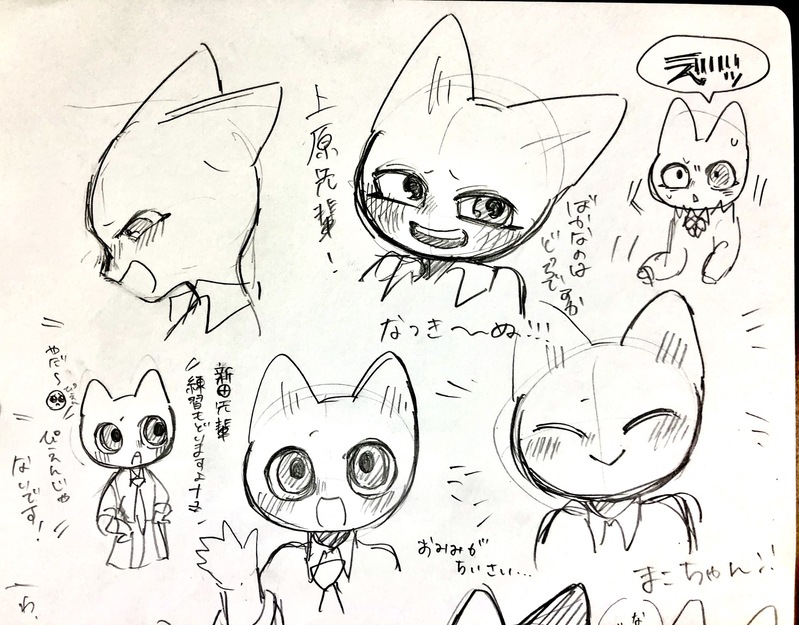 上原先輩!
ばかなのは
どっちですか
なっき〜〜ぬ!!!
やだ〜
ぴえん
ぴえんじゃ
ないです!
新田先輩
練習もどりますよ
おみみが
ちいさい...
まこちゃん!!
な